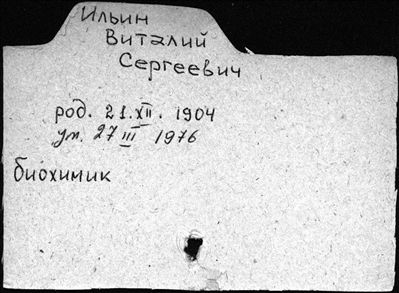 Ильин
Виталий
Сергеевич
род. 21.XII. 1904
ум. 27 III 1976
биохимик